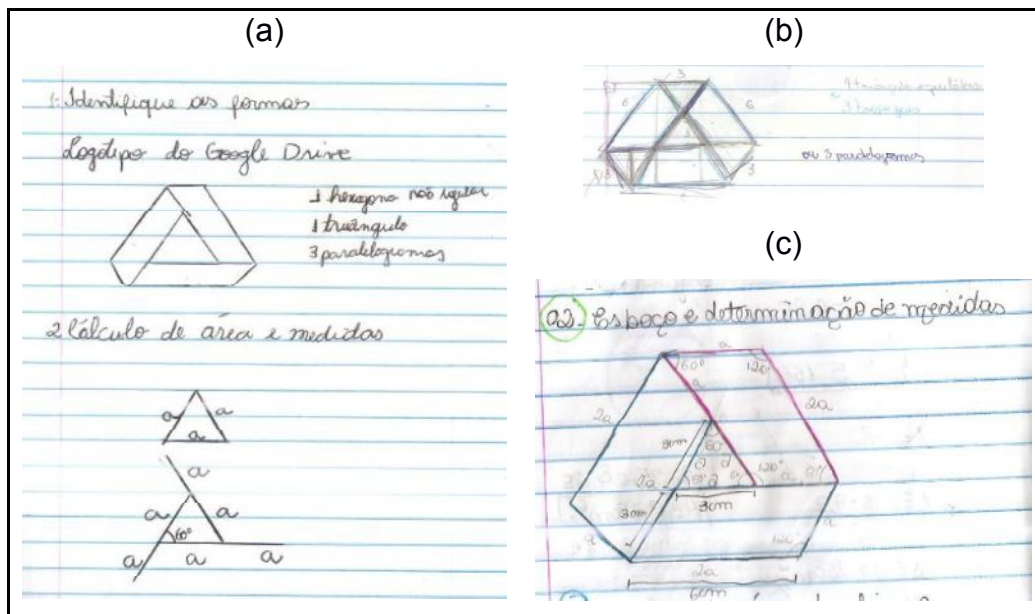 (a)
1. Identifique as formas
Logotipo do Google Drive
1 hexágono não regular
1 triângulo
3 paralelogramos
2 Cálculo de área e medidas
a a
a
a
a a
60°
a a a
(b)
3
6 6
1 triângulo equilátero
3 trapézios
ou 3 paralelogramos
3 3
(c)
02- Esboço e determinação de medidas
a
60° 120°
a
2a 2a
3cm 60°
a a
2a a 120° a
3cm 3cm
a a
120°
2a
6cm